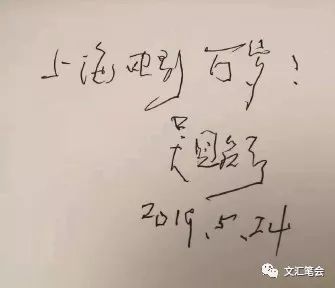 上海电影 百岁!
吴贻弓
2019.5.24
文汇笔会